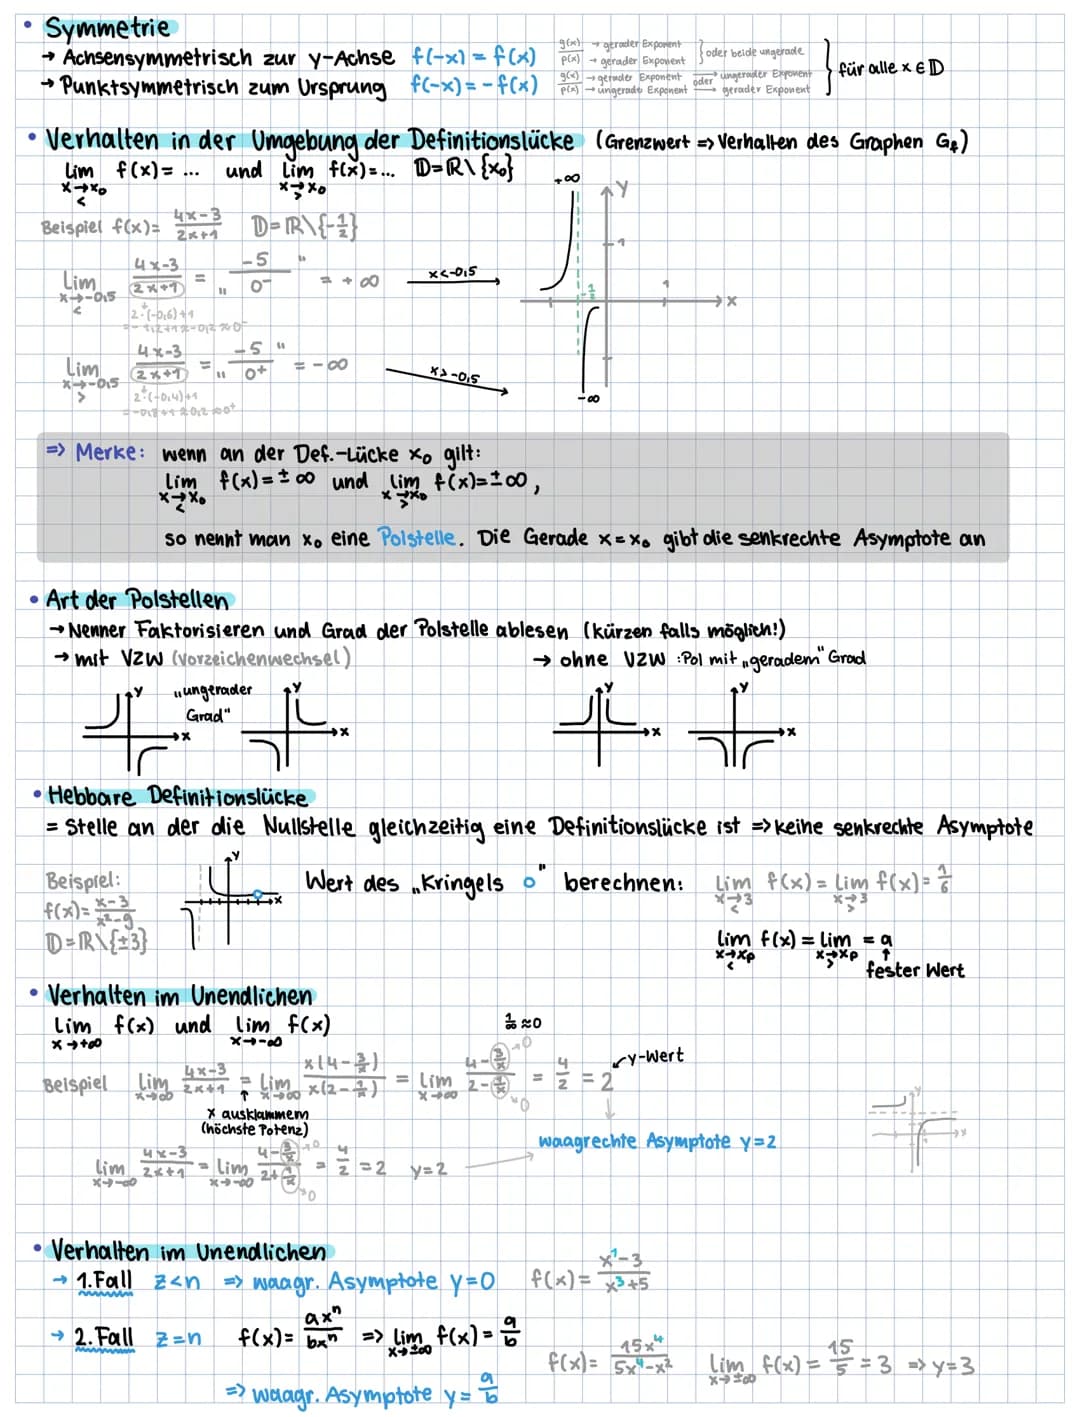 • Symmetrie
→ Achsensymmetrisch zur y-Achse f(-x) = f(x) g(x)/p(x) → gerader Exponent → gerader Exponent } oder beide ungerade
→ Punktsymmetrisch zum Ursprung f(-x) = - f(x) g(x)/p(x) → gerader Exponent → ungerade Exponent oder → ungerader Exponent → gerader Exponent } für alle x ∈ 𝔻
• Verhalten in der Umgebung der Definitionslücke (Grenzwert => Verhalten des Graphen Gf)
lim x→x₀ < f(x) = ... und lim x→x₀ > f(x) = ... 𝔻=ℝ\{x₀}
Beispiel f(x) = (4x-3)/(2x+1) 𝔻=ℝ\{-1/2}
lim x→-0,5 < (4x-3)/(2x+1) = „ -5/0⁻ " = + ∞ x<-0,5
2·(-0,6)+1
= -1,2+1≈-0,2≈0⁻
lim x→-0,5 > (4x-3)/(2x+1) = „ -5/0⁺ " = -∞ x>-0,5
2·(-0,4)+1
= -0,8+1≈0,2≈0⁺
+∞ y 1 -1/2 1 x -∞
=> Merke: wenn an der Def.-Lücke x₀ gilt:
lim x→x₀ < f(x) = ± ∞ und lim x→x₀ > f(x)=±∞,
so nennt man x₀ eine Polstelle. Die Gerade x = x₀ gibt die senkrechte Asymptote an
• Art der Polstellen
→ Nenner Faktorisieren und Grad der Polstelle ablesen (kürzen falls möglich!)
→ mit VZW (Vorzeichenwechsel) → ohne VZW : Pol mit „geradem" Grad
y x „ungerader Grad" y x y x y x
• Hebbare Definitionslücke
= Stelle an der die Nullstelle gleichzeitig eine Definitionslücke ist => keine senkrechte Asymptote
Beispiel: y x Wert des „Kringels o" berechnen: lim x→3 < f(x) = lim x→3 > f(x) = 1/6
f(x) = (x-3)/(x²-9)
𝔻=ℝ\{±3} lim x→xp < f(x) = lim x→xp > = a
fester Wert
• Verhalten im Unendlichen
lim x→+∞ f(x) und lim x→-∞ f(x) 1/∞ ≈0
Beispiel lim x→∞ (4x-3)/(2x+1) = lim x→∞ x(4-3/x)/x(2-1/x) = lim x→∞ (4-3/x →0)/(2-1/x →0) = 4/2 = 2 y-Wert
x ausklammern
(höchste Potenz)
waagrechte Asymptote y=2 y x
lim x→-∞ (4x-3)/(2x+1) = lim x→-∞ (4-3/x →0)/(2+1/x →0) = 4/2 = 2 y=2
• Verhalten im Unendlichen
→ 1.Fall z<n => waagr. Asymptote y=0 f(x) = (x¹-3)/(x³+5)
→ 2.Fall z=n f(x) = axⁿ/bxⁿ => lim x→±∞ f(x) = a/b
f(x) = 15x⁴/(5x⁴-x²) lim x→±∞ f(x) = 15/5 = 3 => y=3
=> waagr. Asymptote y = a/b